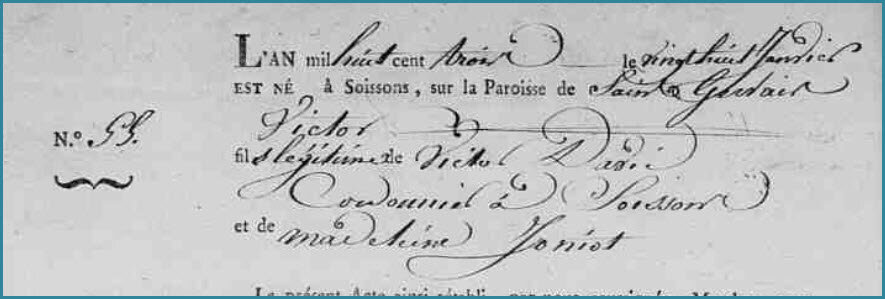 L'AN mil huit cent trois le vingt huit Janvier
EST NÉ à Soissons, sur la Paroisse de Saint Gervais
Victor
N.º 55.
fils légitime de Victor Darié
Cordonnier à Soissons
et de madeleine Joniot
Le présent Acte ainsi rétabli